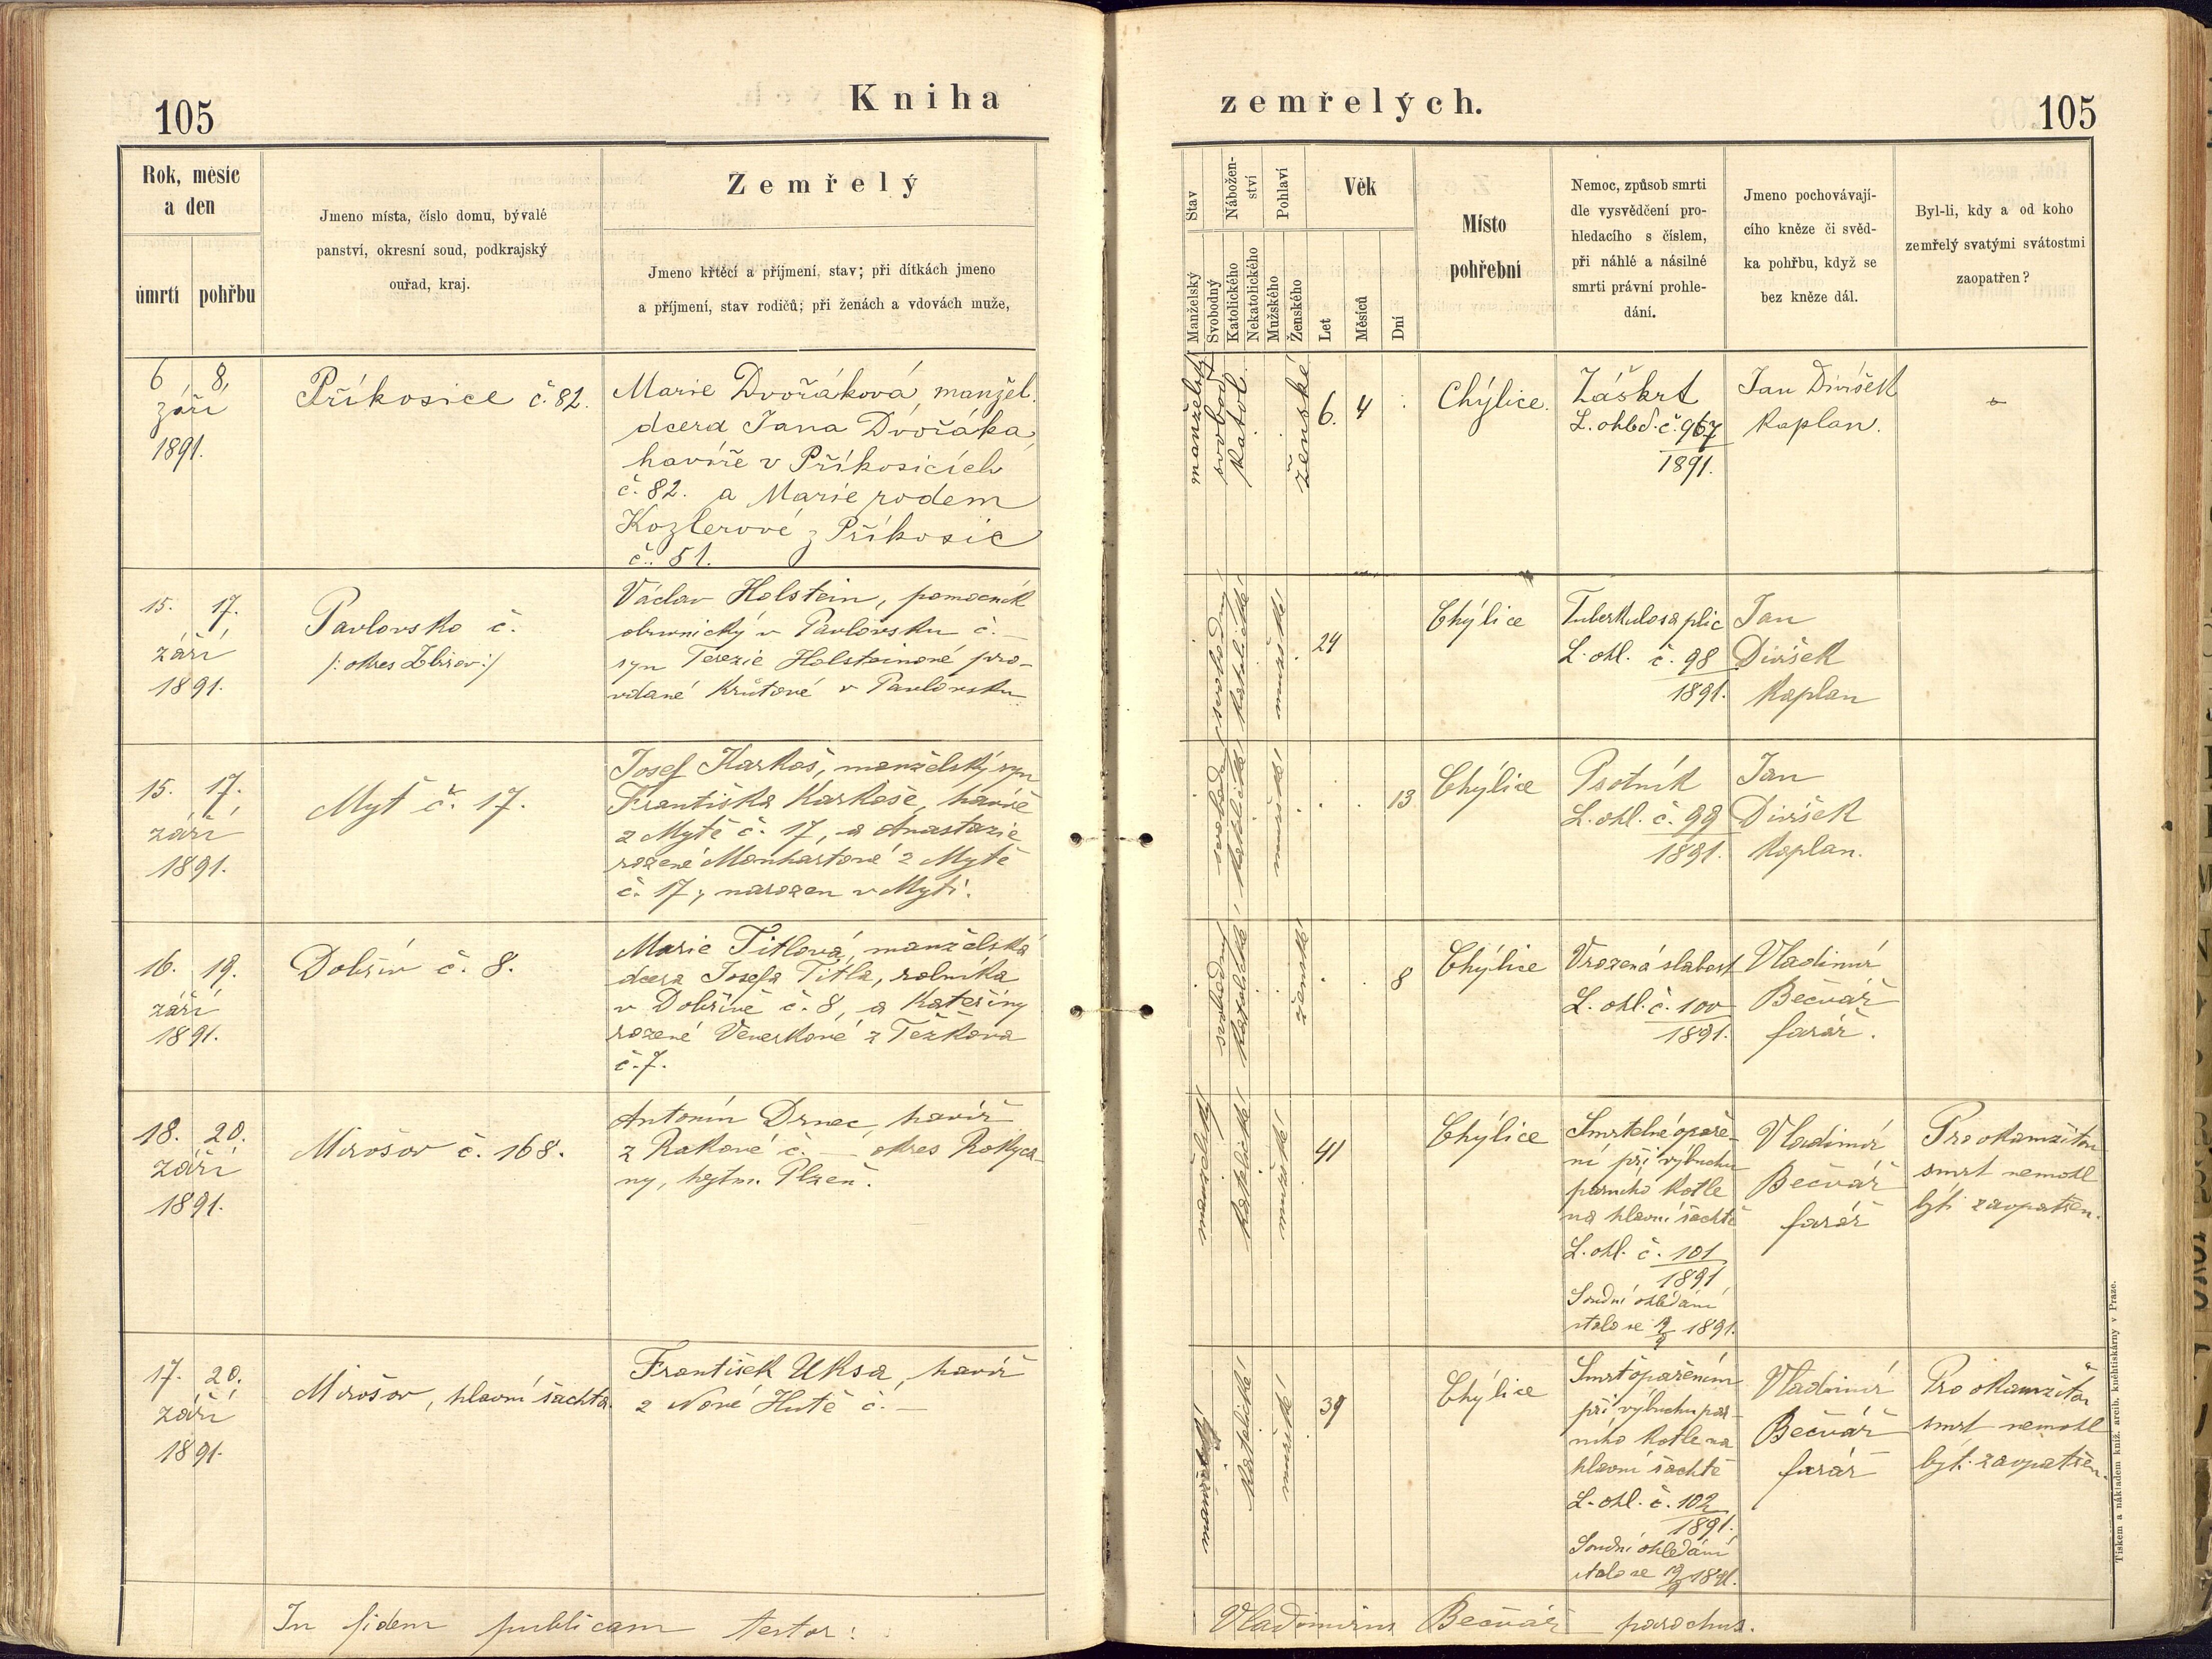 105
Kniha
zemřelých.
105
Rok, měsíc
a den
úmrtí
pohřbu
Jmeno místa, číslo domu, bývalé
panství, okresní soud, podkrajský
ouřad, kraj.
Zemřelý
Jmeno křtěcí a příjmení, stav; při dítkách jmeno
a příjmení, stav rodičů; při ženách a vdovách muže,
Stav
Manželský
Svobodný
Nábožen-
ství
Katolického
Nekatolického
Pohlaví
Mužského
Ženského
Věk
Let
Měsíců
Dní
Místo
pohřební
Nemoc, způsob smrti
dle vysvědčení pro-
hledacího s číslem,
při náhlé a násilné
smrti právní prohle-
dání.
Jmeno pochovávají-
cího kněze či svěd-
ka pohřbu, když se
bez kněze dál.
Byl-li, kdy a od koho
zemřelý svatými svátostmi
zaopatřen?
6 8,
září
1891.
Příkosice č. 82.
Marie Dvořáková, manžel.
dcera Jana Dvořáka,
havíře v Příkosicích
č. 82. a Marie rodem
Kozlerové z Příkosic
č. 51.
svobod.
katol.
ženské
6. 4
Chýlice.
Záškrt
L. ohled. č. 967
1891.
Jan Divíšek
kaplan.
15. 17.
září
1891.
Pavlovsko č.
/: okres Zbirov :/
Václav Holstein, pomocník
obuvnický v Pavlovsku č. —
syn Terezie Holsteinové pro-
vdané Krůtové v Pavlovsku
svobodný
katolické
mužské
24
Chýlice
Tuberkulosa plic
L. ohl. č. 98
1891.
Jan
Divíšek
kaplan
15. 17.
září
1891.
Myť č. 17.
Josef Karkoš, manželský syn
Františka Karkoše, havíře
z Mytě č. 17, a Anastazie
rozené Manhartové z Mytě
č. 17, narozen v Myti.
katolické
mužské
13
Chýlice
Psotník
L. ohl. č. 99
1891.
Jan
Divíšek
kaplan.
16. 19.
září
1891.
Dobřív č. 8.
Marie Titlová, manželská
dcera Josefa Titla, rolníka
v Dobřívě č. 8, a Kateřiny
rozené Venerkové z Těžkova
č. 7.
svobodný
katolické
ženské
8
Chýlice
Vrozená slabost
L. ohl. č. 100
1891.
Vladimír
Bečvář
farář.
18. 20.
září
1891.
Mirošov č. 168.
Antonín Drnec, havíř
z Rakové č. — okres Rokyca-
ny, hejtm. Plzeň.
manželský
katolické
mužské
41
Chýlice
Smrtelné opaře-
ní při výbuchu
parního kotle
na hlavní šachtě
L. ohl. č. 101
1891
Soudní ohledání
stalo se 19/9 1891.
Vladimír
Bečvář
farář
Pro okamžitou
smrt nemohl
býti zaopatřen.
17. 20.
září
1891.
Mirošov, hlavní šachta.
František Uksa, havíř
z Nové Hutě č. —
manželský
katolické
mužské
39
Chýlice
Smrt opařením
při výbuchu par-
ního kotle na
hlavní šachtě
L. ohl. č. 102
1891.
Soudní ohledání
stalo se 19/9 1891.
Vladimír
Bečvář
farář
Pro okamžitou
smrt nemohl
býti zaopatřen.
In fidem publicam testor:
Vladimirus Bečvář parochus.
Tiskem a nákladem kníž. arcib. kněhtiskárny v Praze.